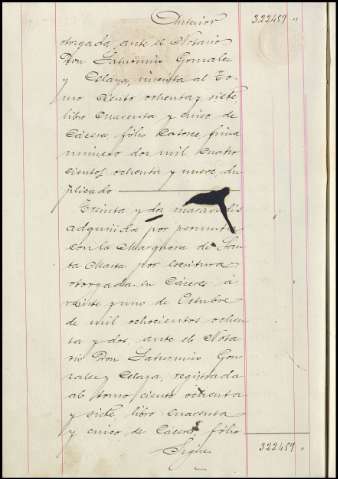 Anterior 322459 "
otorgada, ante el Notario
Don Saturnino Gonzalez
y Celaya, inscrita al To-
mo ciento ochenta y siete
libro cuarenta y cinco de
Cáceres, fólio catorce, finca
número dos mil cuatro
cientos ochenta y nueve, du
plicado
Treinta y dos maravedis
adquirida por permuta
con la Marquesa de San
ta Marta por escritura
otorgada en Cáceres á
veinte y uno de Octubre
de mil ochocientos ochen
ta y dos, ante el Nota
rio Don Saturnino Gon
zalez y Celaya, registrada
al tomo ciento ochenta
y siete libro cuarenta
y cinco, de Cáceres fólio
Sigue 322459 "